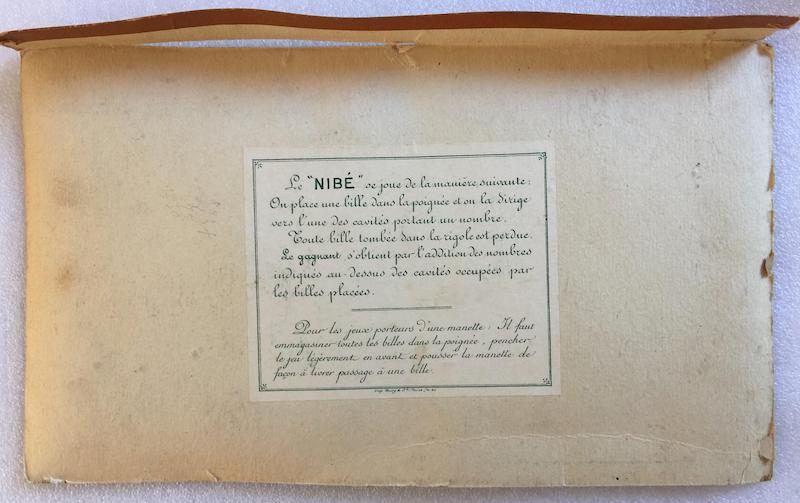 Le "NIBÉ" se joue de la manière suivante :
On place une bille dans la poignée et on la dirige
vers l'une des cavités portant un nombre.
Toute bille tombée dans la rigole est perdue.
Le gagnant s'obtient par l'addition des nombres
indiqués au-dessus des cavités occupées par
les billes placées.
Pour les jeux porteurs d'une manette : Il faut
emmagasiner toutes les billes dans la poignée, pencher
le jeu légèrement en avant et pousser la manette de
façon à livrer passage à une bille.